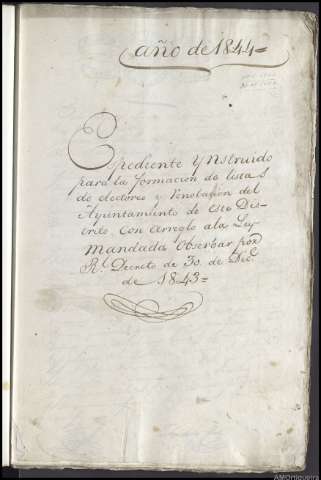 año de 1844=
Espediente Ynstruido
para la formacion de listas
de electores y Renobasion del
Ayuntamiento de este Dis-
trito. Con arreglo ala Ley
Mandada Observar por
Rl. Decreto de 30. de Dice.
de 1843=
AMOrtigueira